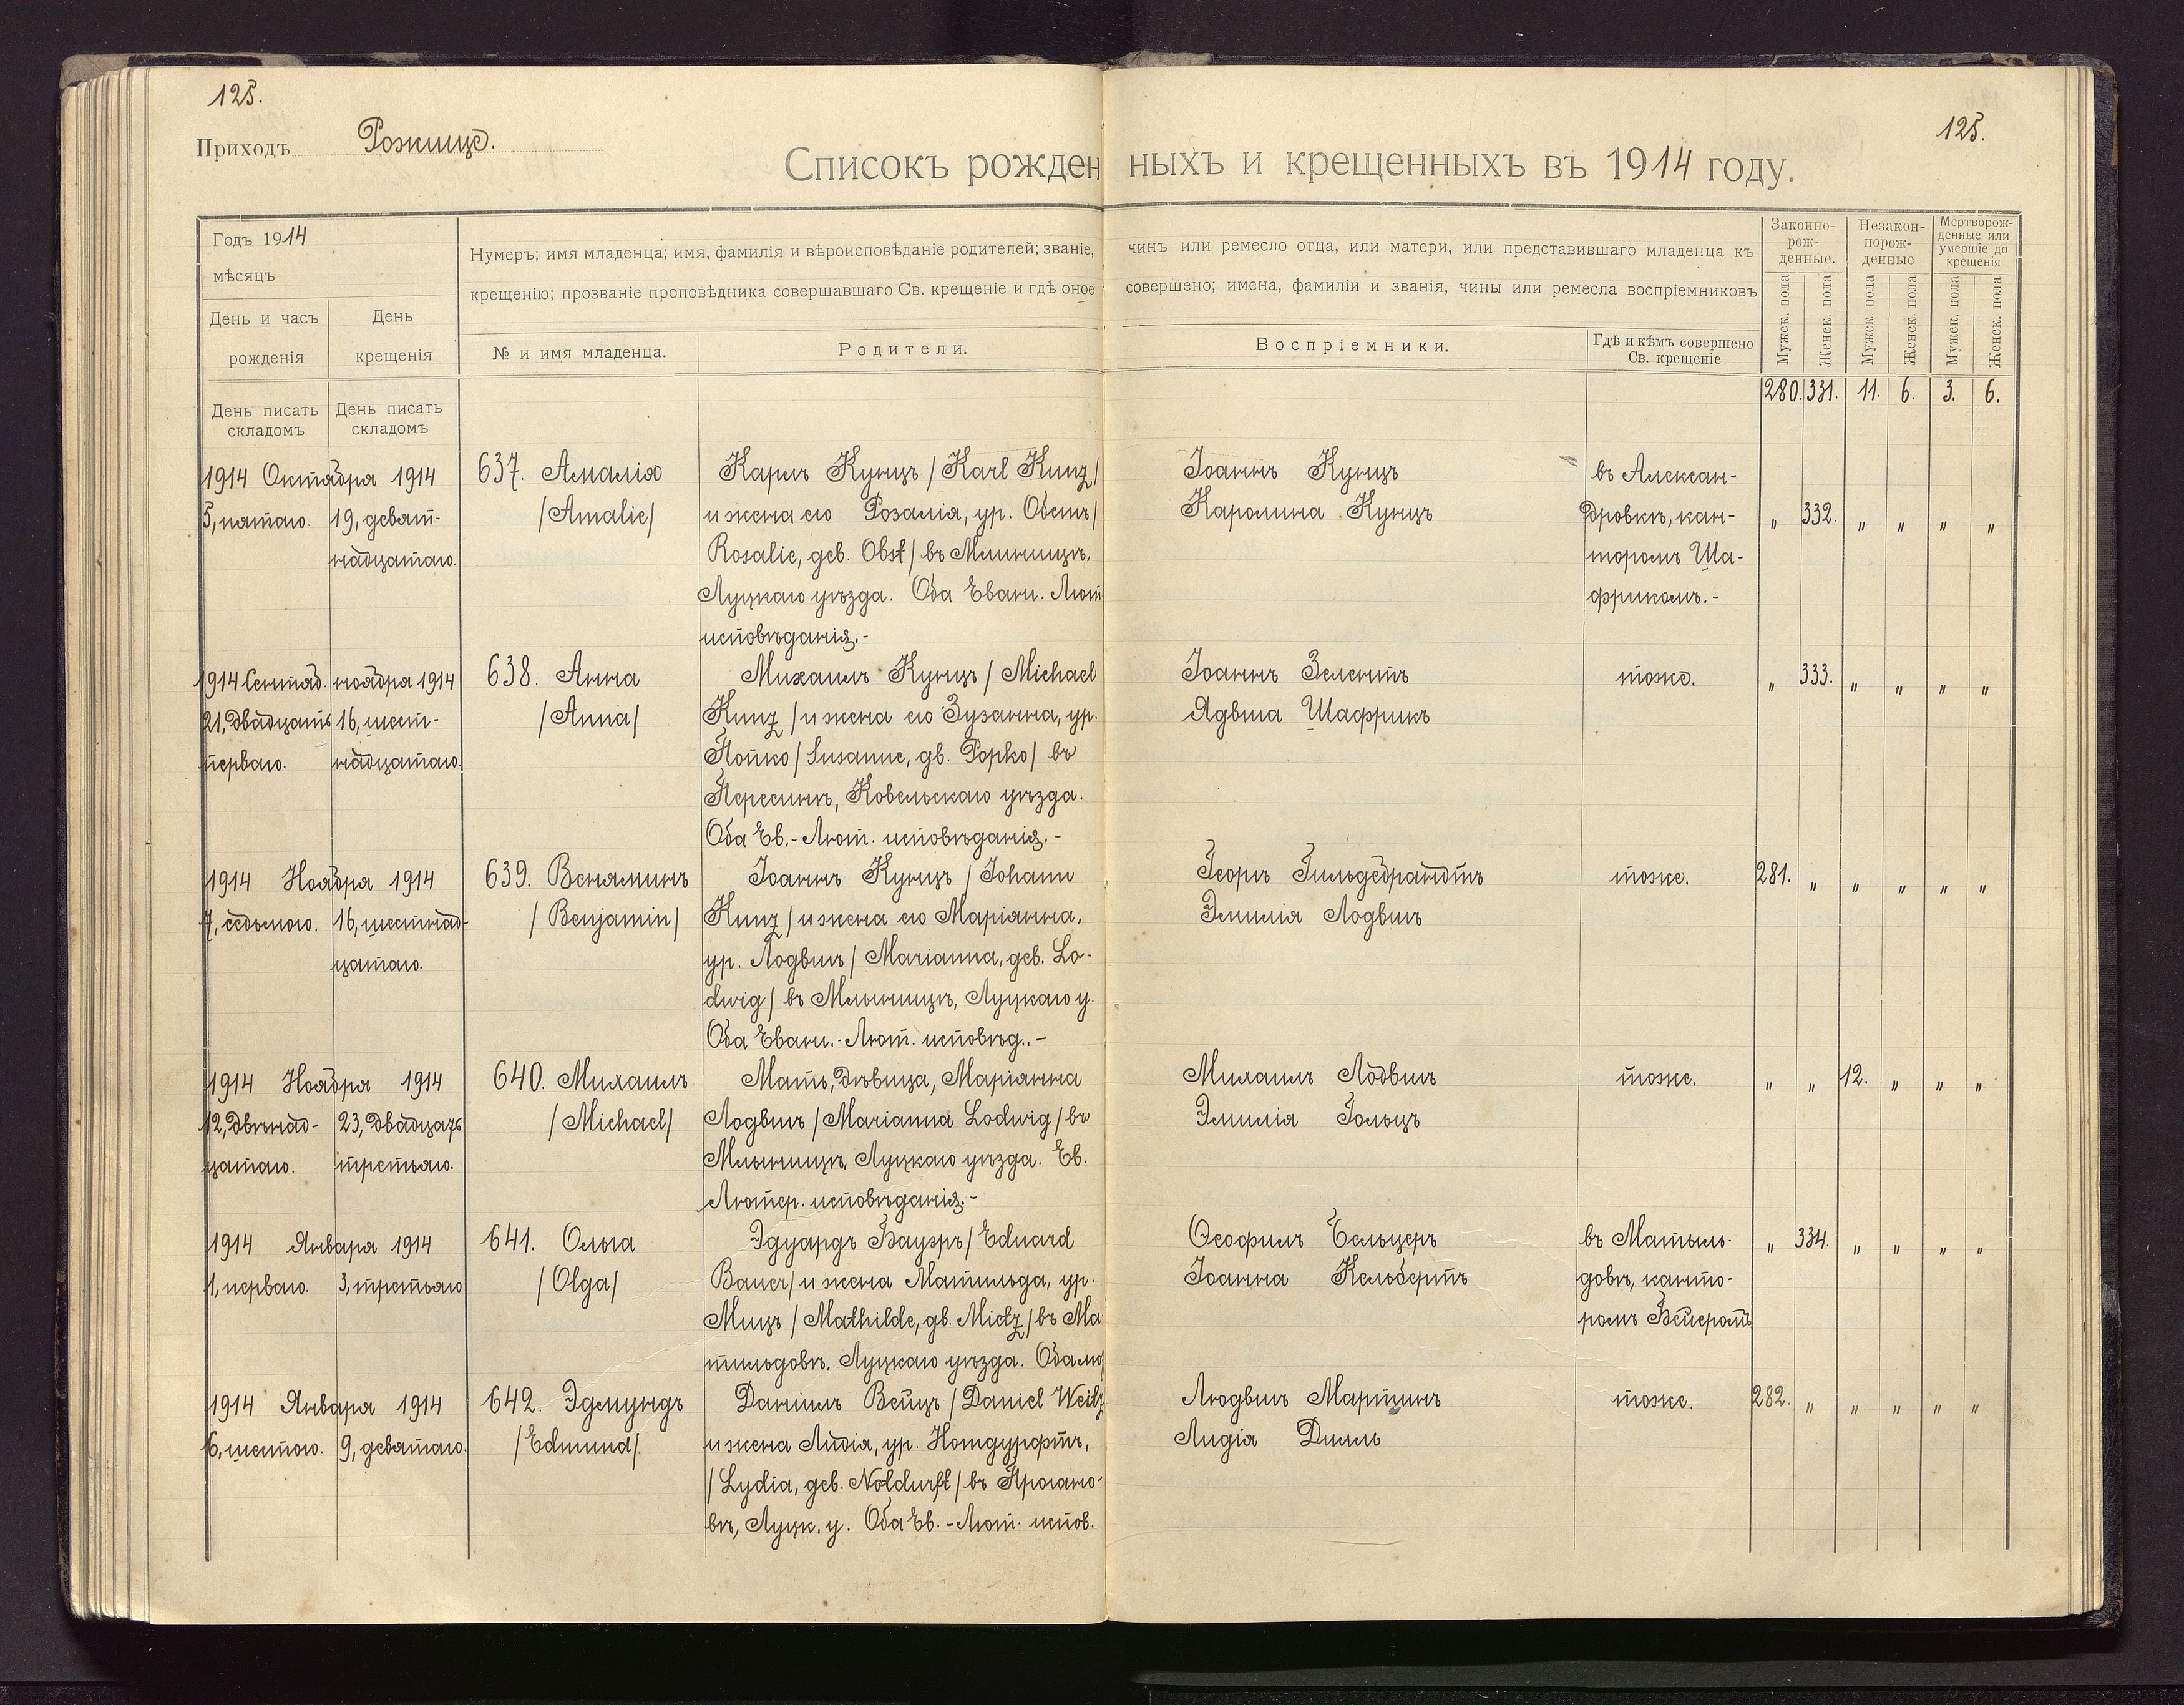 125.
125.
Приходъ Рожище.
Списокъ рожденныхъ и крещенныхъ въ 1914 году.
Годъ 1914
мѣсяцъ
День и часъ рожденія
День крещенія
Нумеръ; имя младенца; имя, фамилія и вѣроисповѣданіе родителей; званіе, чинъ или ремесло отца, или матери, или представившаго младенца къ
крещенію; прозваніе проповѣдника совершавшаго Св. крещеніе и гдѣ оное совершено; имена, фамиліи и званія, чины или ремесла воспріемниковъ
№ и имя младенца.
Родители.
Воспріемники.
Гдѣ и кѣмъ совершено
Св. крещеніе
Законно-
рож-
денные.
Незакон-
норож-
денные
Мертворож-
денные или
умершіе до
крещенія
Мужск. пола
Женск. пола
Мужск. пола
Женск. пола
Мужск. пола
Женск. пола
День писать
складомъ
День писать
складомъ
280. 331. 11. 6. 3. 6.
1914 Октября 1914
5, пятаго.
19, девят-
надцатаго.
637. Амалія
/Amalie/
Карлъ Кунцъ / Karl Kunz /
и жена его Розалія, ур. Обстъ /
Rosalie, geb. Obst / въ Млыницѣ,
Луцкаго уѣзда. Оба Еванг. Лют
исповѣданія.-
Іоаннъ Кунцъ
Каролина Кунцъ
въ Алексан-
дровкѣ, кан-
торомъ Ша-
фрикомъ.-
" 332. " " " "
1914 Сентяб. ноября 1914
21, двадцать
перваго.
16, шест-
надцатаго.
638. Анна
/Anna/
Михаилъ Кунцъ / Michael
Kunz / и жена его Зузанна, ур.
Попко / Susanne, gb. Popko / въ
Пересипѣ, Ковельскаго уѣзда.
Оба Ев.-Лют. исповѣданія.-
Іоаннъ Зелентъ
Ядвига Шафрикъ
тоже.
" 333. " " " "
1914 Ноября 1914
7, седьмого.
16, шестнад-
цатаго.
639. Веняминъ
/ Benjamin /
Іоаннъ Кунцъ / Johann
Kunz / и жена его Маріанна,
ур. Лодвигъ / Marianna, geb. Lo-
dwig / въ Млыницѣ, Луцкаго у.
Оба Еванг.-Лют. исповѣд..-
Георгъ Гильдебрандтъ
Эмилія Лодвигъ
тоже.
281. " " " " "
1914 Ноября 1914
12, двѣнад-
цатаго.
23, двадцать
третьяго.
640. Михаилъ
/Michael/
Мать, дѣвица, Маріанна
Лодвигъ / Marianna Lodwig / въ
Млыницѣ, Луцкаго уѣзда. Ев.
Лютер. исповѣданія.-
Михаилъ Лодвигъ
Эмилія Гольцъ
тоже.
" " 12. " " "
1914 Января 1914
1, перваго.
3, третьяго
641. Ольга
/Olga/
Эдуардъ Бауэръ / Eduard
Bauer / и жена Матильда, ур.
Мицъ / Mathilde, gb. Mietz / въ Ма
тильдовѣ, Луцкаго уѣзда. Оба
Ѳеофилъ Бельцеръ
Іоанна Кельбертъ
въ Матиль-
довѣ,канто-
ромъ
" 334. " " " "
1914 Января 1914
6, шестого.
9, девятаго.
642. Эдмундъ
/Edmund/.
Даніилъ Вейцъ / Daniel Weitz
и жена Лидія, ур. Нотдурфтъ,
/ Lydia, geb. Noldurft / въ
вѣ, Луцк. у. Оба Ев.-Лют. испов.
Людвигъ Мартинъ
Лидія Дилль
тоже.
282. " " " " "